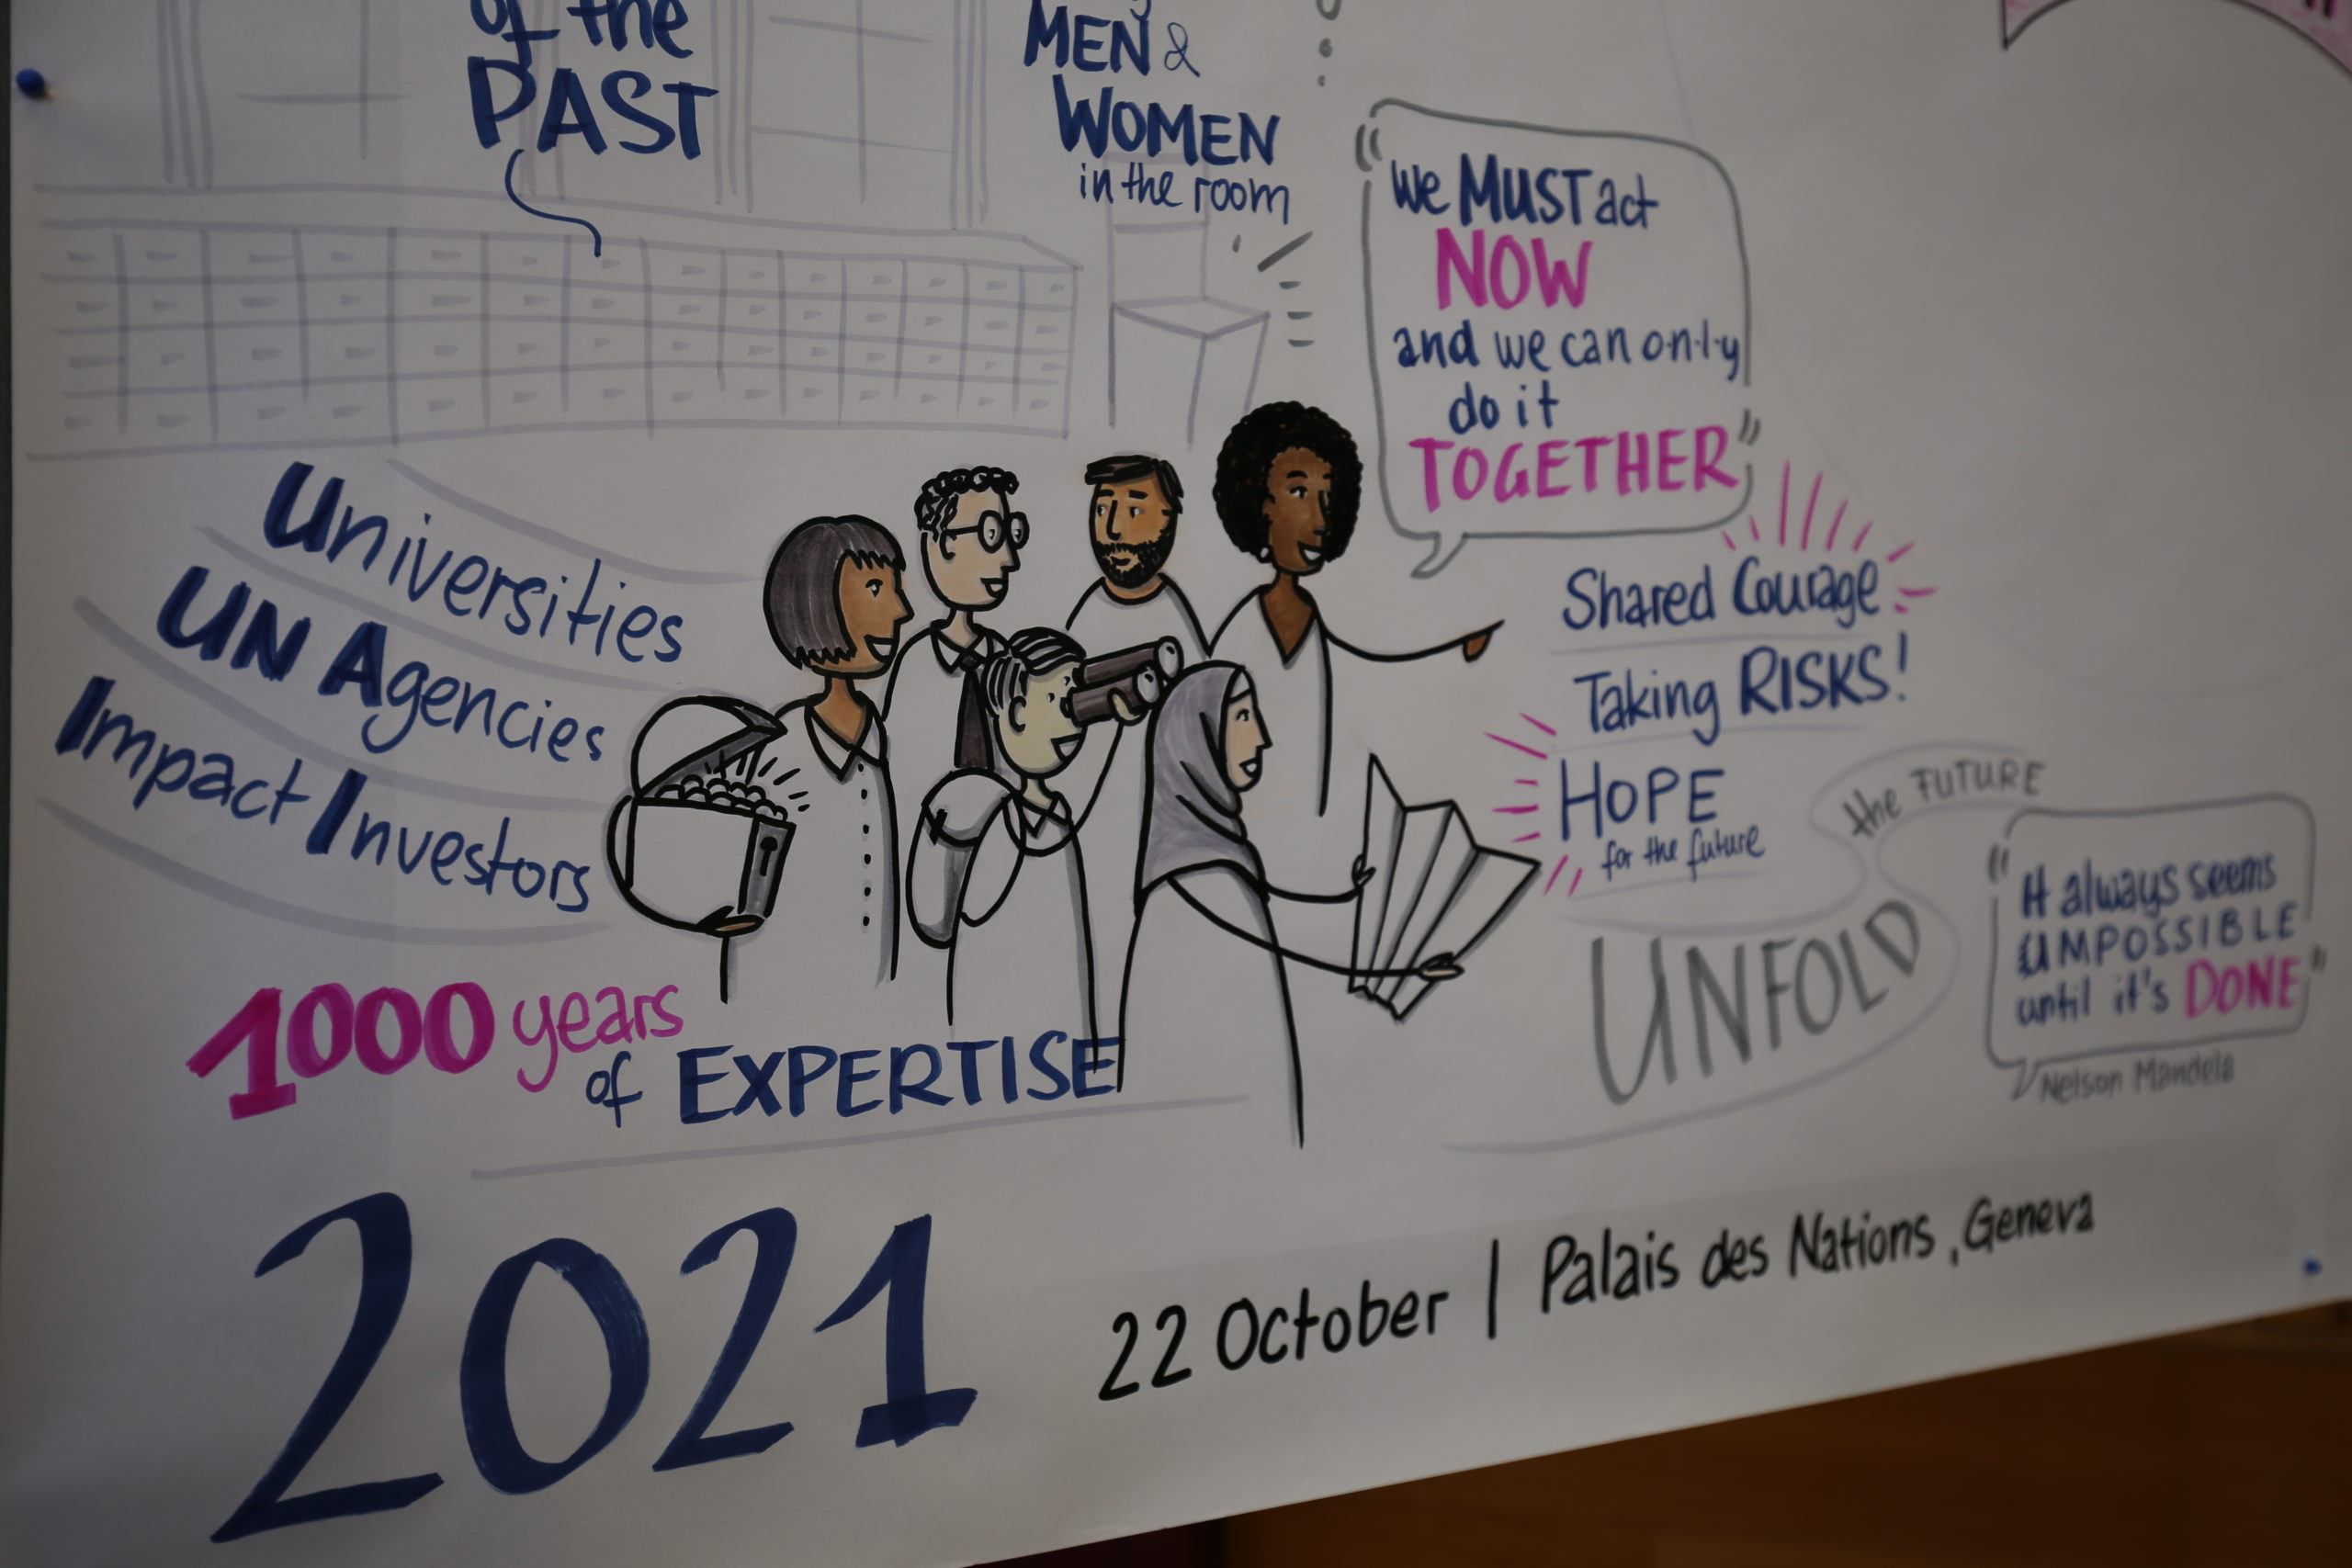 of the
PAST
MEN &
WOMEN
in the room
"We MUST act
NOW
and we can o·n·l·y
do it
TOGETHER"
Universities
UN Agencies
Impact Investors
Shared Courage
Taking RISKS!
HOPE
for the future
the FUTURE
UNFOLD
"It always seems
IMPOSSIBLE
until it's DONE"
Nelson Mandela
1000 years
of EXPERTISE
2021
22 October | Palais des Nations, Geneva